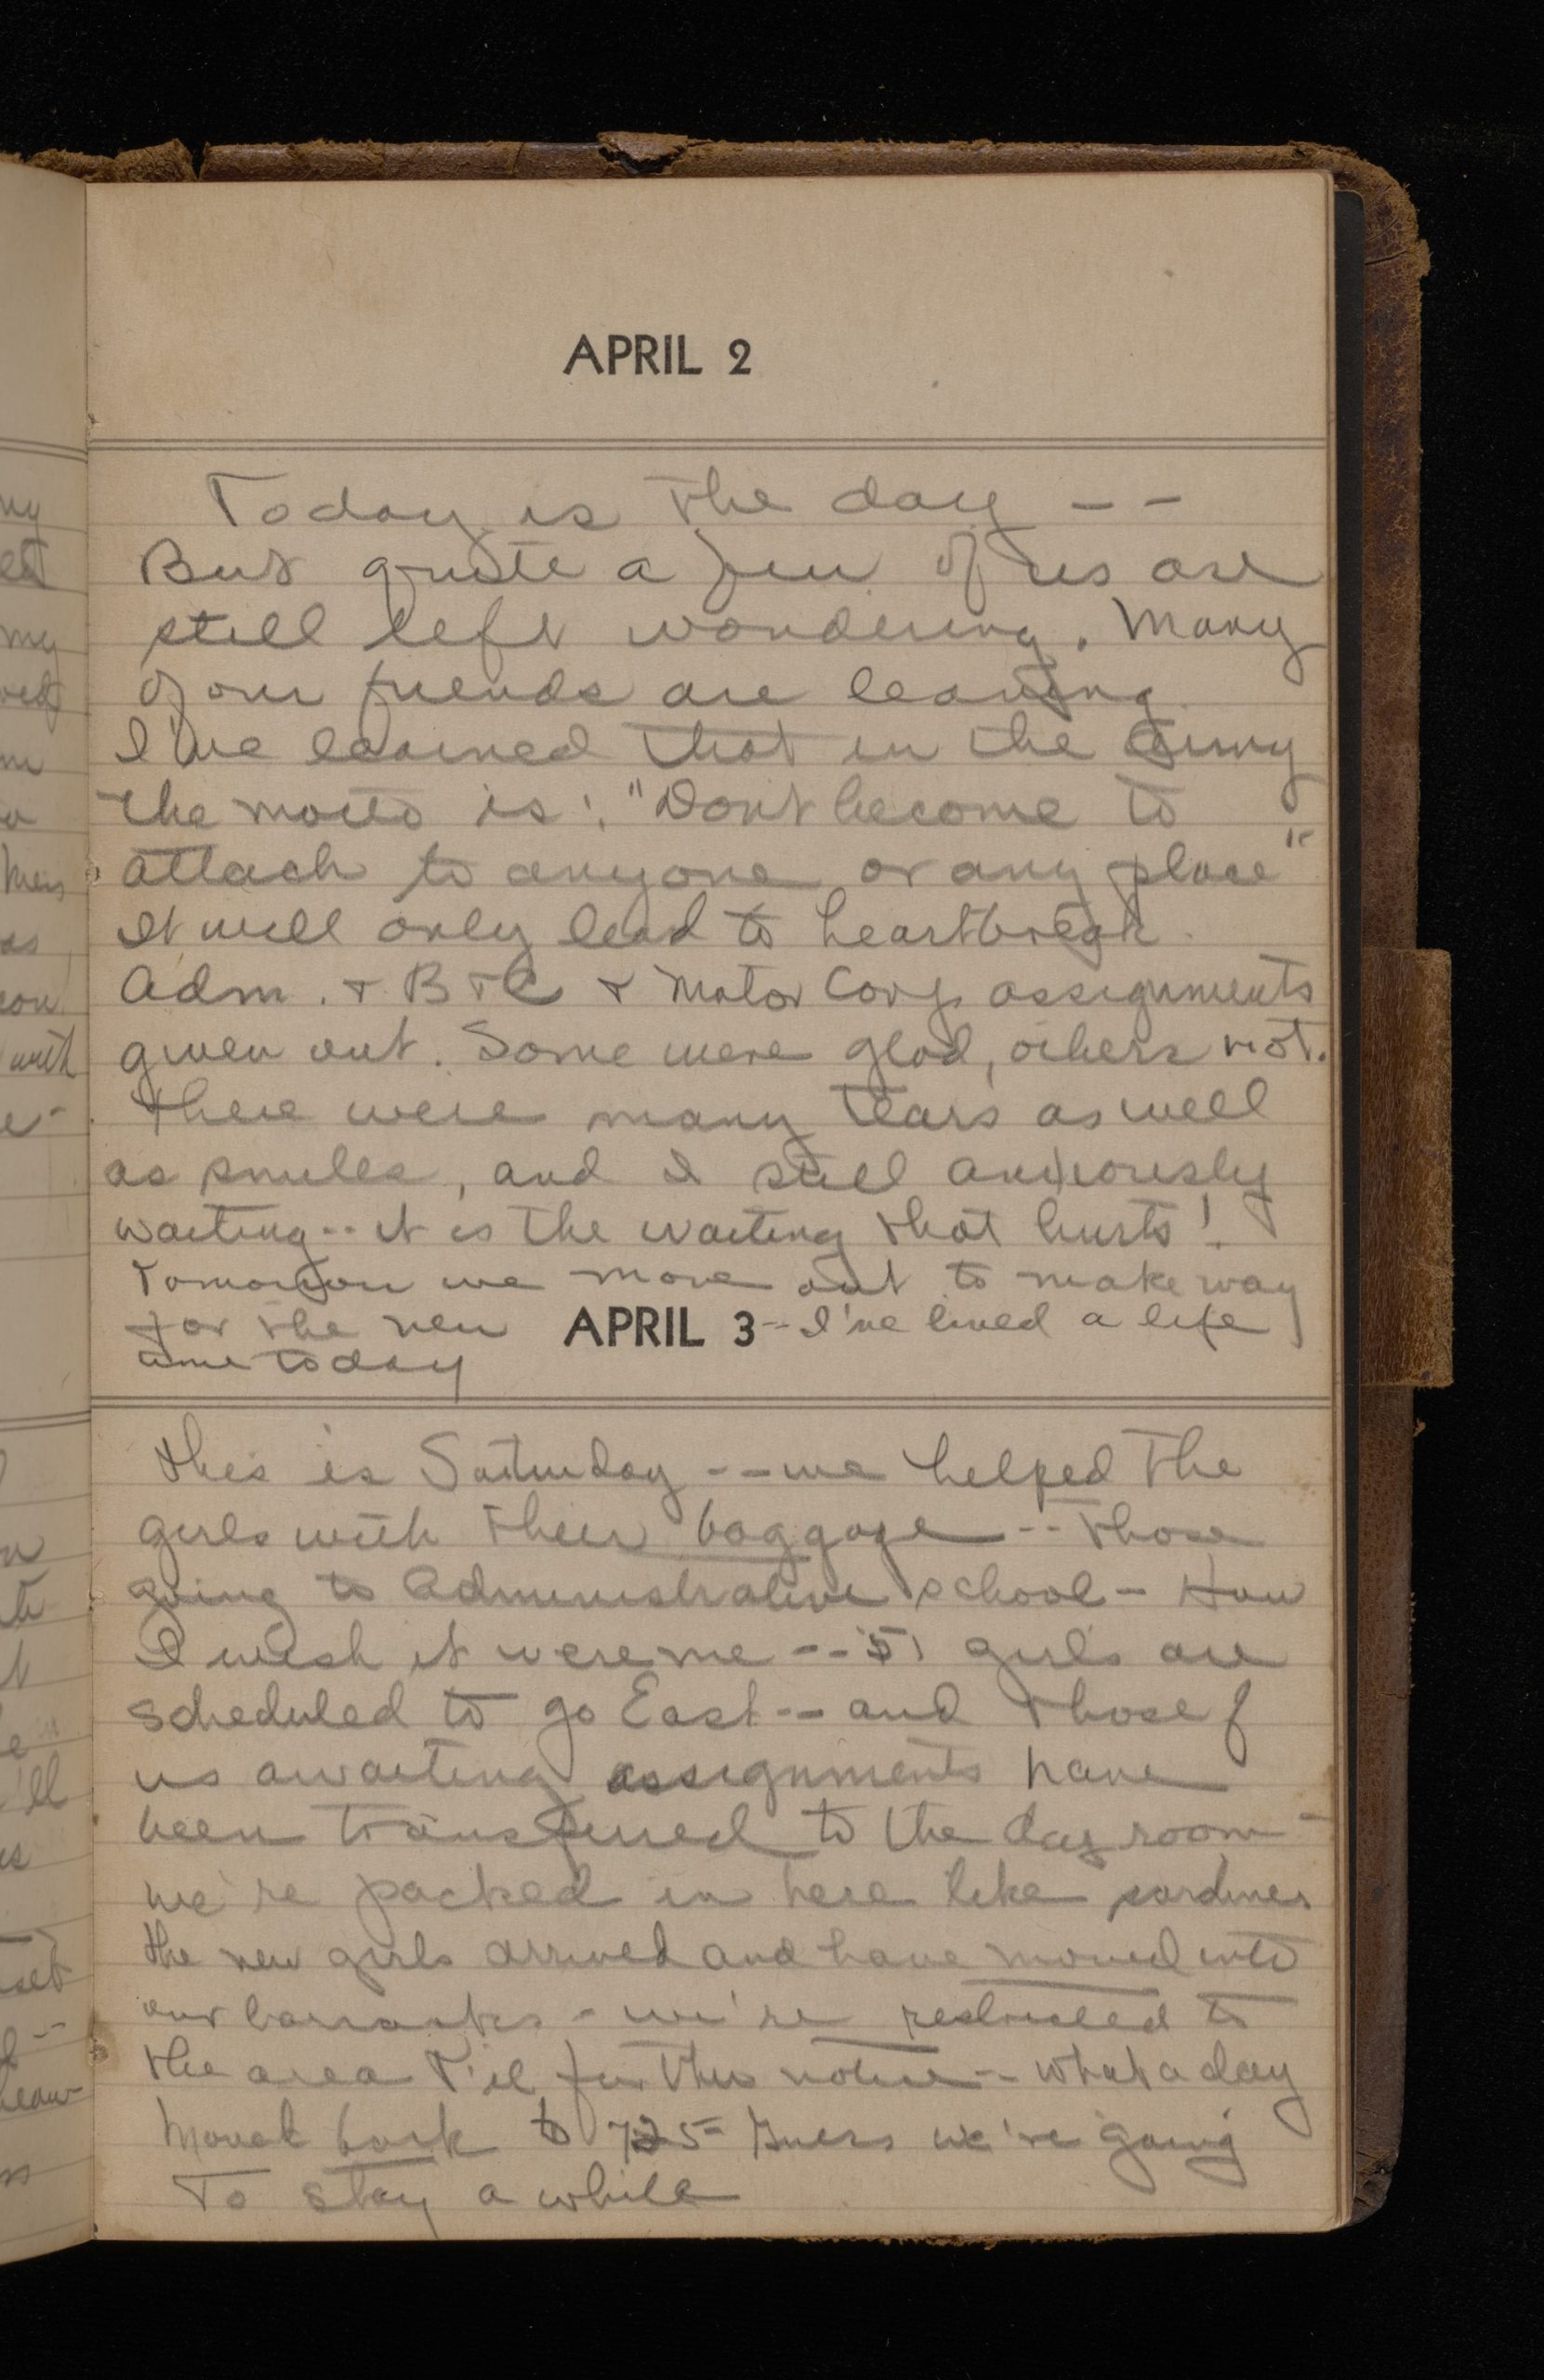 APRIL 2
Today is the day --
But quite a few of us are
still left wondering. Many
of our friends are leaving.
I've learned that in the Army
the motto is: "Don't become to
attach to anyone or any place"
It will only lead to heartbreak.
Adm. + B + C + Motor Corp assignments
given out. Some were glad, others not.
There were many tears as well
as smiles, and I still anxiously
waiting -- it is the waiting that hurts!
Tomorrow we move out to make way
for the new APRIL 3 -- I've lived a life
time today
This is Saturday -- we helped the
girls with their baggage -- Those
going to Administrative school - How
I wish it were me -- 51 girls are
scheduled to go East -- and those of
us awaiting assignments have
been transferred to the day room -
we're packed in here like sardines
the new girls arrived and have moved into
our barracks - we're restricted to
the area t'il further notice -- what a day
Moved back to 725 - Guess we're going
To stay a while
ny
my
m
Men
as
with
'll